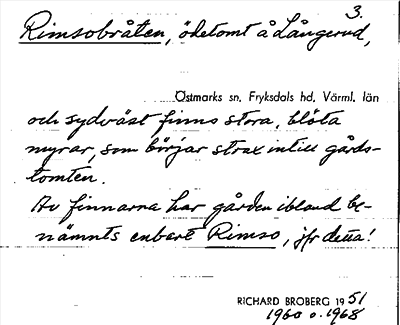 3.
Rimsobråten, ödetomt å Långerud,
Östmarks sn, Fryksdals hd, Värml. län
och sydväst finns stora, blöta
myrar, som börjar strax intill gårds-
tomten.
Av finnarna har gården ibland be-
nämnts enbart Rimso, jfr detta!
RICHARD BROBERG 1951
1960 o. 1968